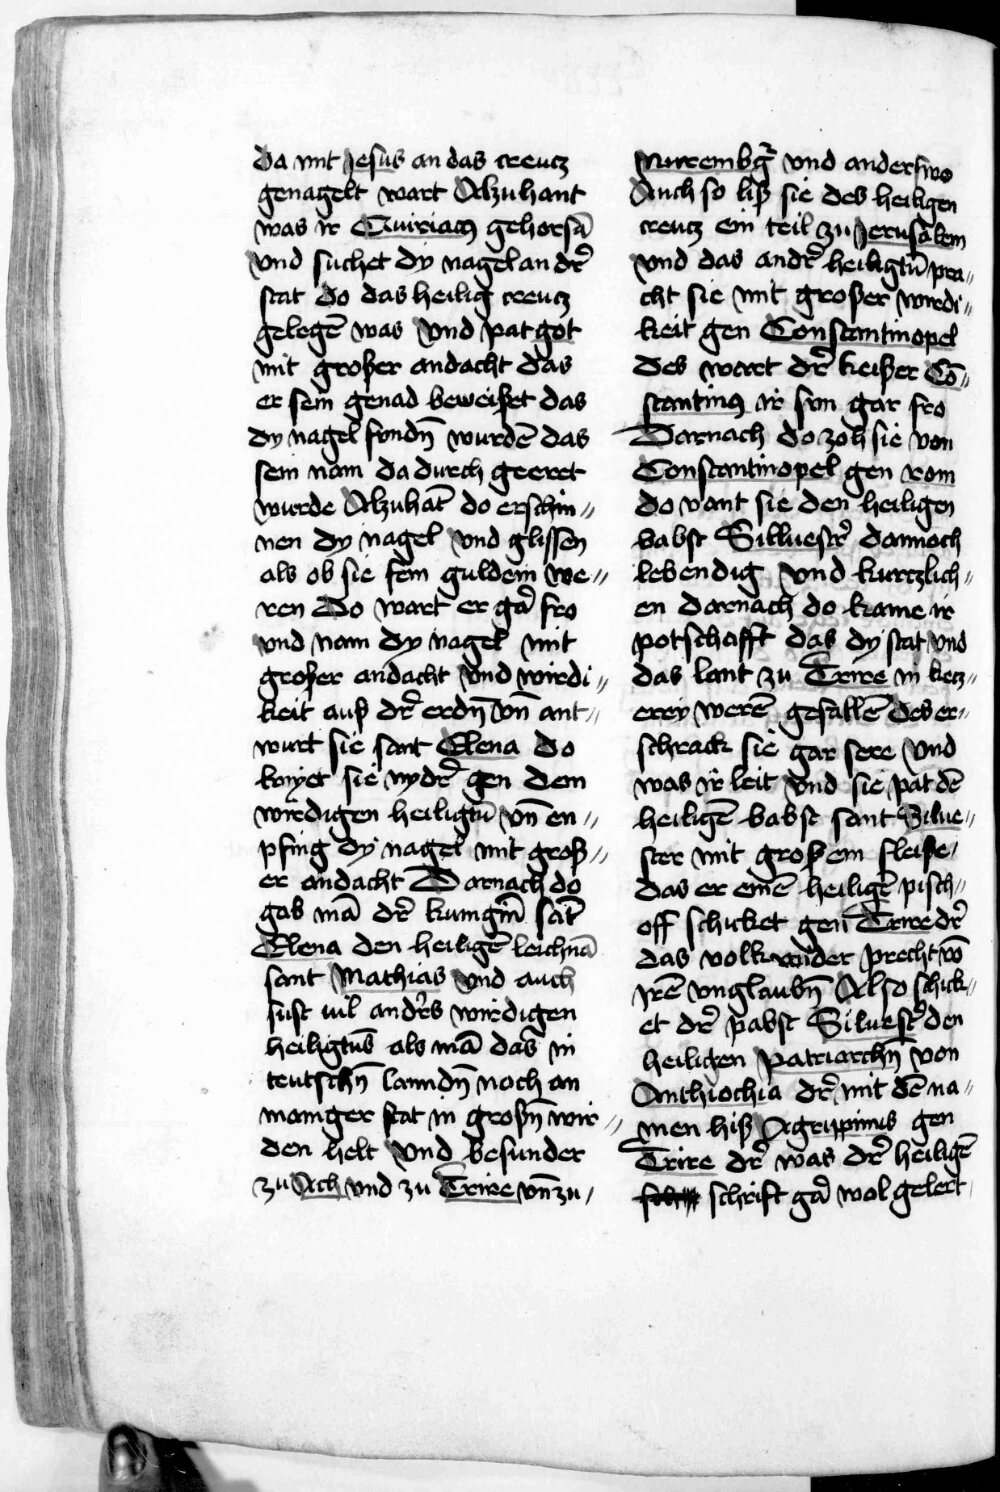 da mit Jesus an das creutz
genagelt wart Alzuhant
was ir Quiriacꝯ gehorsā
vnd suchet dy nagel an dr̄
stat do das heilig creutz
gelegē was vnd pat got
mit großer andacht das
er sein genad beweißet das
dy nagel fundn̄ wurdē das
sein nam da durch geeret
wurde Alzuhāt do erschin〃
nen dy nagel vnd glissen
als ob sie fein guldein we〃
ren Do wart er gar̄ fro
vnd nam dy nagel mit
großer andacht vnd wirdi〃
keit auß dr̄ erdn̄ vn̄ ant〃
wurt sie sant Elena do
knyet sie nydr̄ gen dem
wirdigen heiligtū vn̄ en〃
pfing dy nagel mit groß〃
er andacht Darnach do
gab mā dr̄ kunigin̄ sāt
Elena den heiligē leichnā
sant Mathias vnd auch
sust vil andr̄s wirdigen
heiligtūs als mā das in
teutschn̄ lanndn̄ noch an
maniger stat in großn̄ wir〃
den helt vnd besunder
zu Ach vnd zu Trire vn̄ zu〃
Nurembgꝛ̄ vnd anderswo
Auch so liß sie des heiligen
creutz ein teil zu Jerusalem
vnd das andr̄ heiligtū pra〃
cht sie mit großer wirdi〃
keit gen Constantinopel
des wart dr̄ keißer Cō〃
stantinꝯ ir sun gar fro
Darnach do zoh sie von
Constantinopel gen rom
do vant sie den heiligen
babst Silluestr̄ dannoch
lebendig vnd kurtzlich〃
en darnach do kame ir
potschafft das dy stat vnd
das lant zu Trire in ketz〃
erey werē gefallē des er〃
schrack sie gar sere vnd
was ir leit vnd sie pat dē
heiligē babst sant Silue〃
ster mit großem fleiße
das er einē heiligē pisch〃
off schicket gen Trire dr̄
das volk wider precht vō
irē vnglaubn̄ Also schick〃
et dr̄ pabst Siluestr̄ den
heiligen Patriarchn̄ von
Anthiochia dr̄ mit dē na〃
men hiß Agrippinus gen
Trire dr̄ was dr̄ heiligē
schrift gar̄ wol gelert